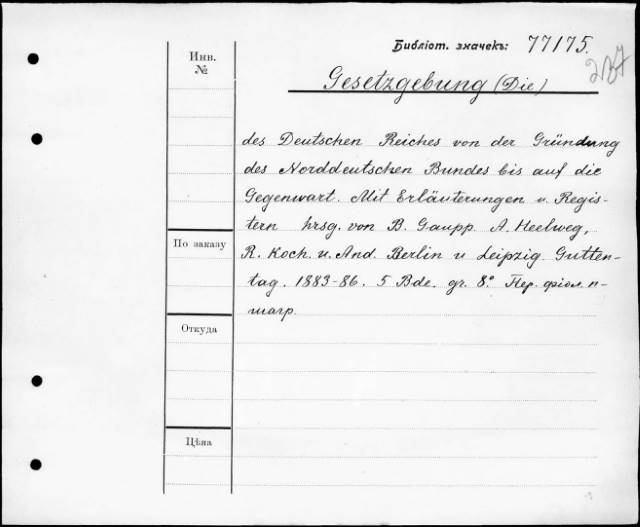 Библіот. значекъ: 77175.
237
Инв.
№
Gesetzgebung (Die)
des Deutschen Reiches von der Gründung
des Norddeutschen Bundes bis auf die
Gegenwart. Mit Erläuterungen u. Regis-
tern hrsg. von B. Gaupp. A. Heelweg,
R. Koch. u. And. Berlin u Leipzig. Gutten-
tag. 1883-86. 5 Bde. gr. 8° Пер. фіол. п-
шагр.
По заказу
Откуда
Цѣна